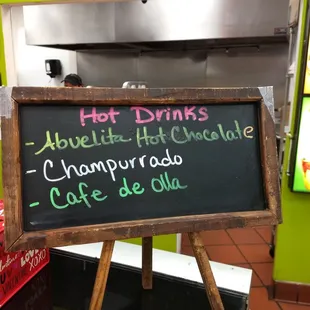 Hot Drinks
- Abuelita Hot Chocolate
- Champurrado
- Cafe de olla
XOXO